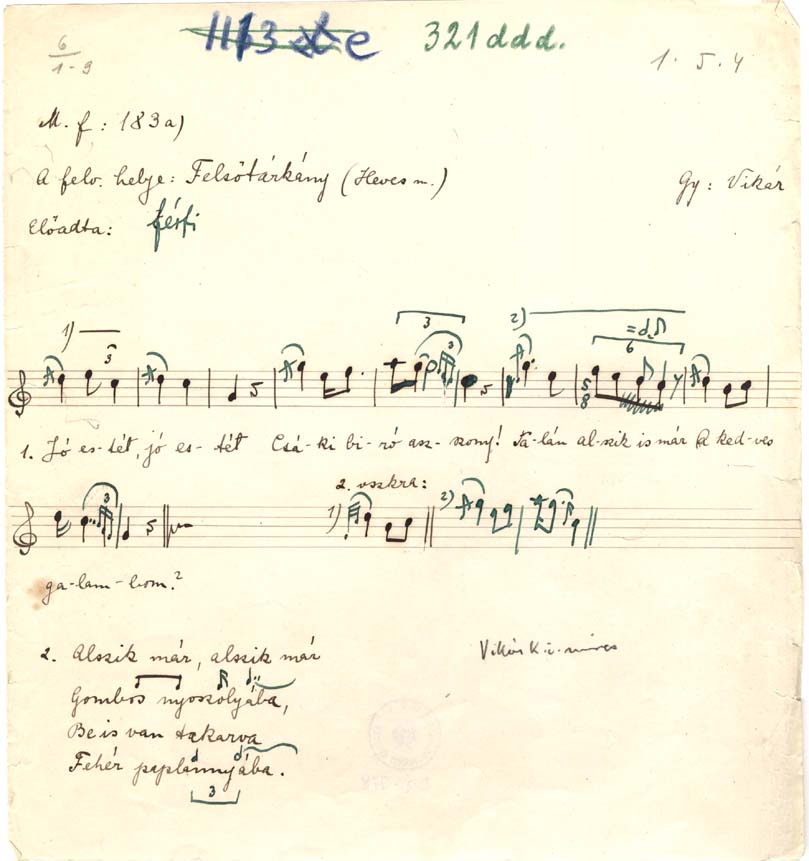 6
1-9
1113 e 321 ddd.
1. 5. 4
M. f: 183a)
A felv. helye: Felsőtárkány (Heves m.) Gy: Vikár
Előadta: férfi
1) 3 3 3 2) = 6
5 8
1. Jó es-tét, jó es-tét Csá-ki bi-ró asz-szony! Ta-lán al-szik is már A ked-ves
3 2. vszkra: 1) 2)
ga-lam-bom?
2. Alszik már, alszik már
Gombos nyoszolyába,
Be is van takarva
Fehér paplannyába.
3